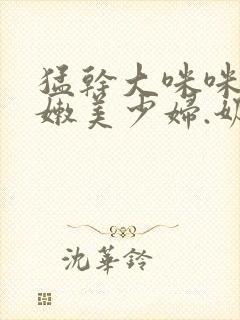 猛幹大咪咪
嫩美少婦.奶
沈華鈴